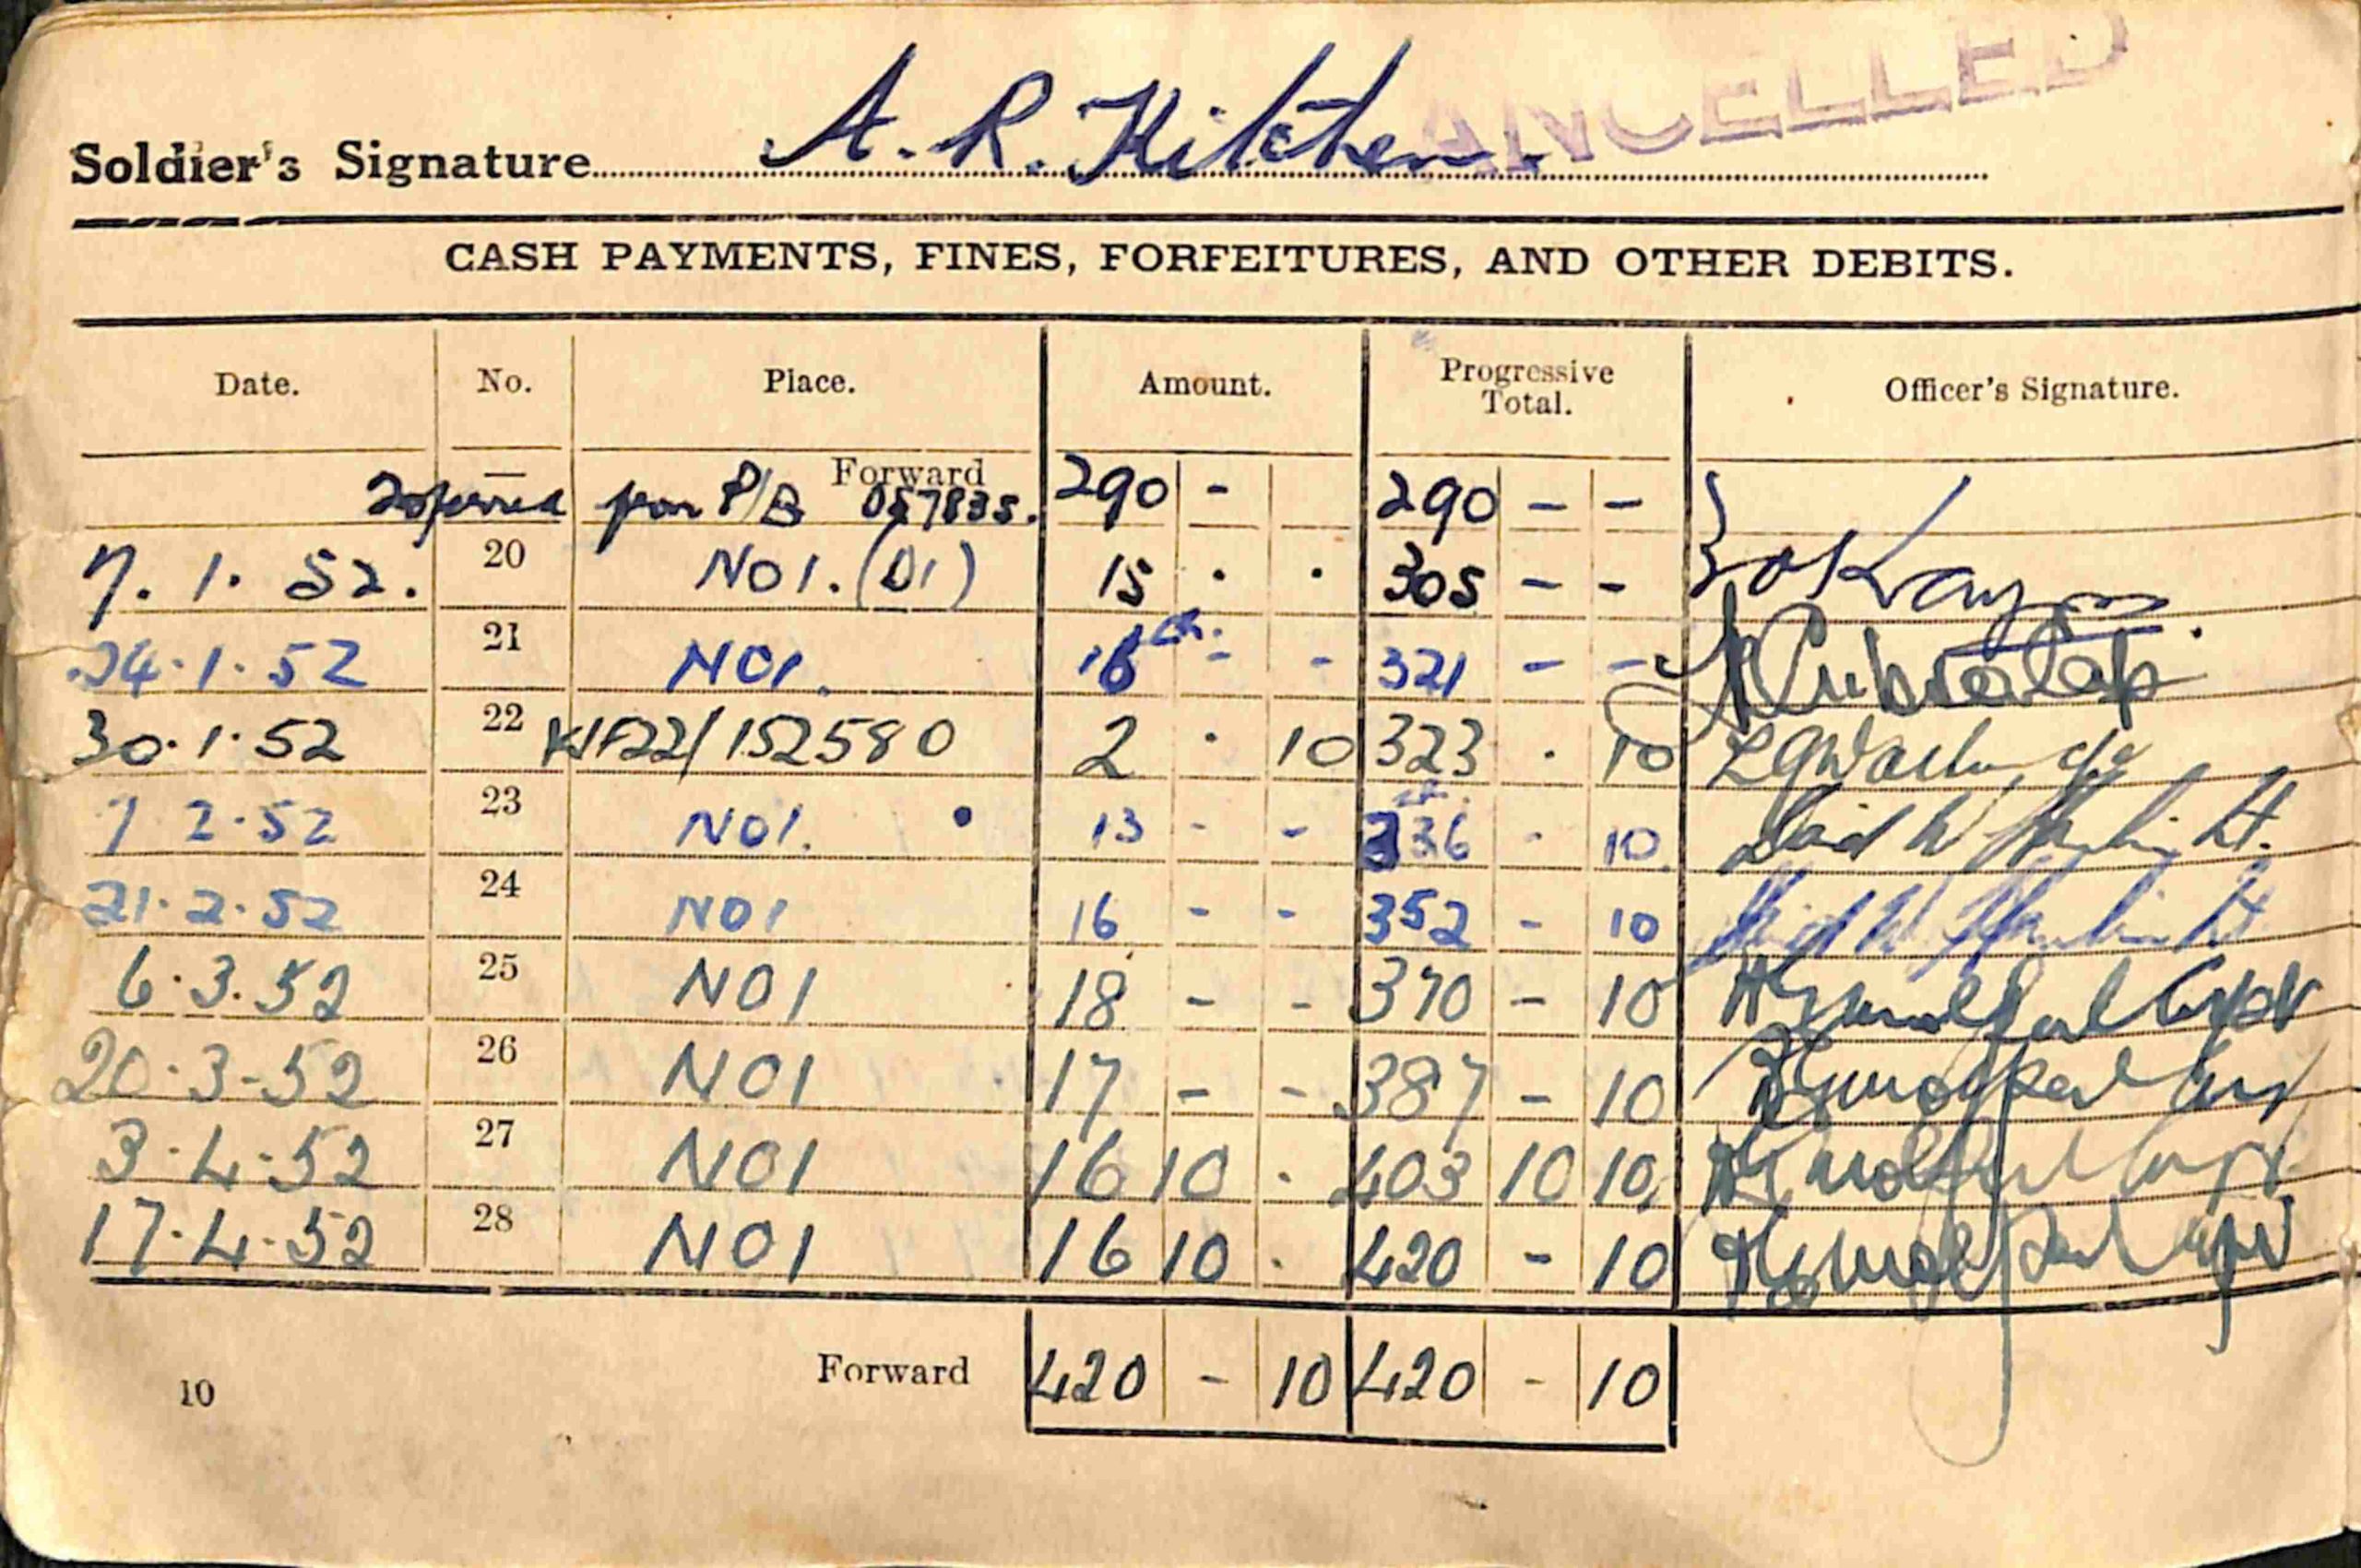 ANCELLED
Soldier's Signature A. R. Kitchen.
CASH PAYMENTS, FINES, FORFEITURES, AND OTHER DEBITS.
Date. No. Place. Amount. Progressive Total. Officer's Signature.
— Forward
P/B 057835. 290 - 290 - -
7. 1. 52. 20 NO1. (D1) 15 . . 305 - -
24.1.52 21 NO1. 16 - - 321 - -
30.1.52 22 152580 2 . 10 323 . 10
7 2.52 23 NO1. 13 - - 336 - 10
21.2.52 24 NO1 16 - - 352 - 10
6.3.52 25 NO1 18 - - 370 - 10
20.3-52 26 NO1 17 - - 387 - 10
3.4.52 27 NO1 16 10 . 403 10 10
17.4.52 28 NO1 16 10 . 420 - 10
Forward 420 - 10 420 - 10
10